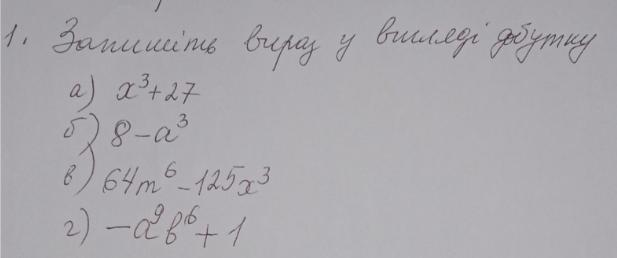 1. Запишіть вираз у вигляді добутку
а) x³+27
б) 8-a³
в) 64m⁶-125x³
г) -a⁹b⁶+1